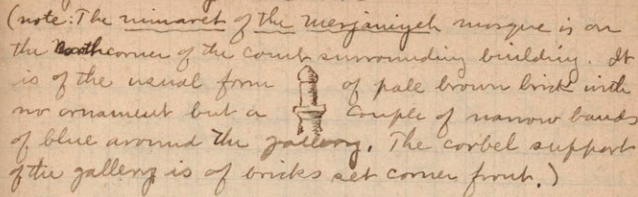 (note: The minaret of the Merjaniyeh mosque is on
the North corner of the court surrounding building. It
is of the usual form of pale brown brick with
no ornament but a couple of narrow bands
of blue around the gallery. The corbel support
of the gallery is of bricks set corner front.)